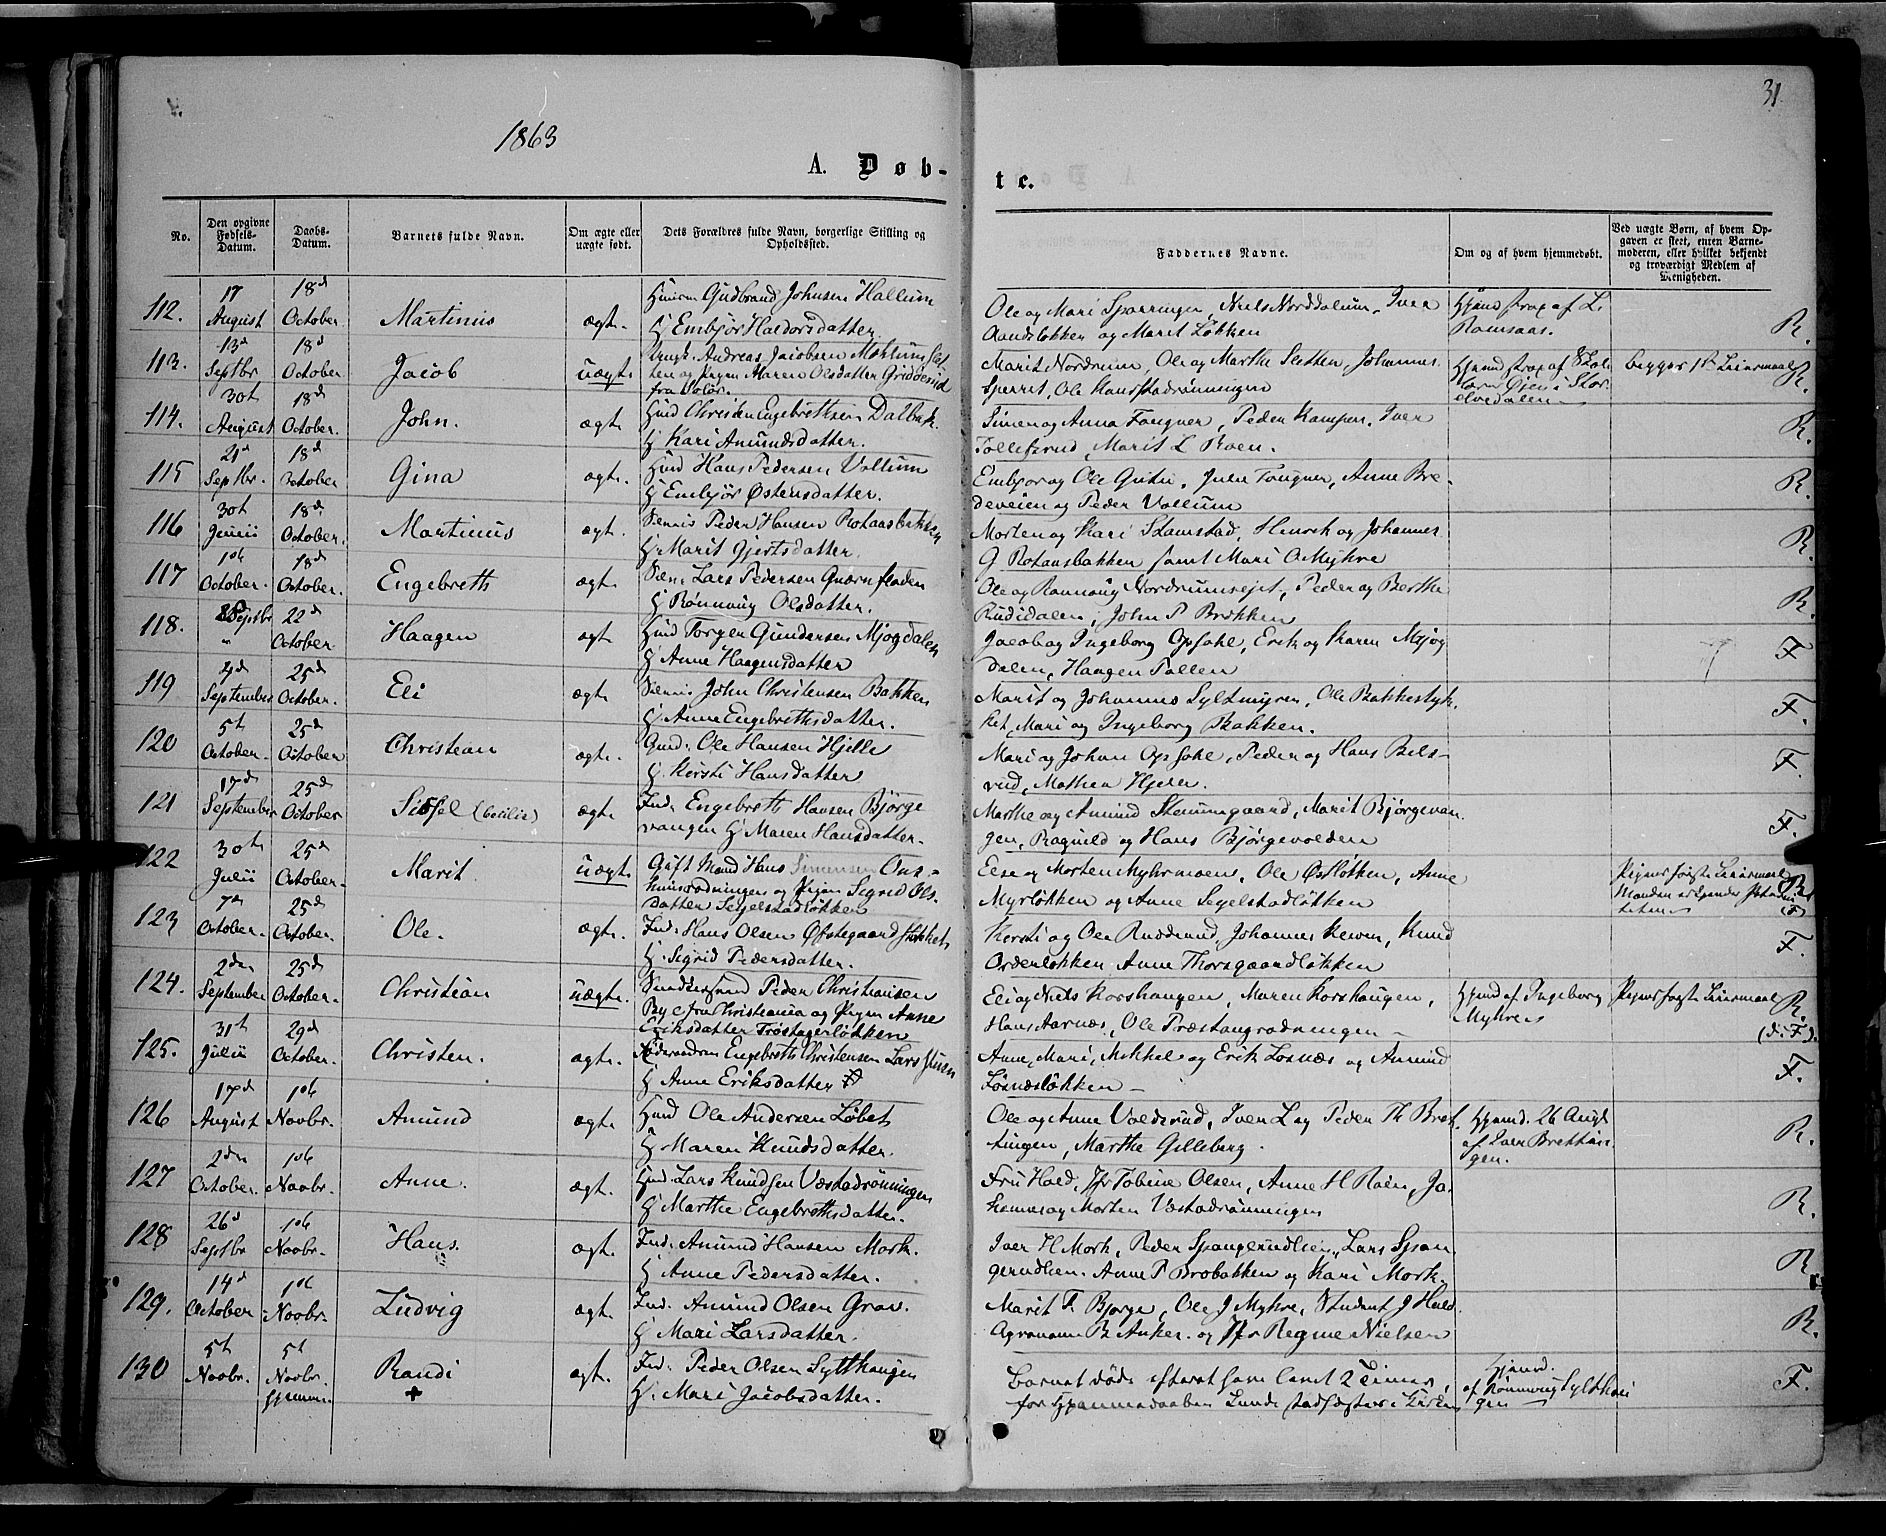 31
1863
A. Døb-
te.
No.
Den opgivne Fødsels-Datum.
Daabs-Datum.
Barnets fulde Navn.
Om ægte eller uægte født.
Dets Forældres fulde Navn, borgerlige Stilling og Opholdssted.
Faddernes Navne.
Om og af hvem hjemmedøbt.
Ved uægte Børn, af hvem Opgaven er skeet, enten Barnemoderen, eller hvilket bekjendt og troværdigt Medlem af Menigheden.
112. 17 August 18d October Martinus ægt. Gudbrand Johnsen Hallum
H Embjør Haldorsdatter
Ole og Mari Sparringen, Niels Norddalum, Iver
og Marit Løkken
Hjemd strax af L.
Ramsaas. R.
113. 13d Septbr 18d October Jacob uægt. Ungk. Andreas Jacobsen
og Pigen Maren Olsdatter
fra Solør.
Marit Nordrum, Ole og Marthe Sletten, Johannes
Sperret, Ole
Hjemd strax af
Øien i Stor-
elvedalen
begges 1ste Leiermaal R.
114. 30t August 18d October. John. ægt. Huusmd Christen Engebrethsen Dalbak.
H Kari Amundsdatter.
Simen og Anna Fougner, Peder Kampen, Iver
Tollefsrud, Marit L Roen. R.
115 21d Septbr. 18d October Gina ægt. Huusmd Hans Pedersen Vollum
H Embjør Østensdatter.
Embjor og Ole Gutu, Julie Fougner, Anne Bre-
deveien og Peder Vollum R.
116 30t Junii 18d October. Martinus ægt. Peder Hansen Rotaasbakken
H. Marit Gjertsdatter.
Morten og Kari Stamstad, Henrik og Johannes
G Rotaasbakken samt Mari O Myhre R.
117 1ste October. 18d October. Engebreth ægt. Lars Pedersen Quærnfloden
H Rønnoug Olsdatter.
Ole og Rønnoug Nordrumsejet, Peder og Berthe
Rudidalen, John P Brækken R.
118. 28 Septbr " 22d October Haagen ægt Torger Gundersen Mjogdalen
H Anne Haagensdatter
Jacob og Ingeborg Opsahl, Erik og Karen Mjog
dalen, Haagen Tallen F
119 2d September 25d October. Eli ægt. John Christensen Bakken
H Anne Engebrethsdatter.
Marit og Johannes Syltmyren, Ole Bakkestyk-
ket, Mari og Ingeborg Bakken. F.
120 5t October. 25d October Christian ægt. Gaard. Ole Hansen Hjelle
H. Kersti Hansdatter
Mari og Johan Opsahl, Peder og Hans Bels-
rud, Mathea Hjelle. F.
121 17d September 25d October Sissel (Cecilie) ægt. Ind. Engebreth Hansen Bjørge
vangen H Maren Hansdatter.
Marthe og Amund Stenumgaard, Marit Bjørgevan-
gen, Ragnild og Hans Bjørgevolden F.
122 30te Julii 25d October. Marit uægt. Gift Mand Hans Simensen
og Pigen Sigrid Ols-
datter Segelstadløkken
Else og Morten Myhrmoen, Ole Østløkken, Anne
Myrløkken og Anne Segelstadløkken
Pigens første Leiermaal
Manden R
(F)
123 7de October. 25d October. Ole. ægt. Ind. Hans Olsen Øfstegaard
H. Sigrid Pedersdatter.
Kersti og Ole Rudsrud, Johannes Kewen, Knud
Orderløkken, Anne Thorsgaardløkken F.
124. 2den September 25d October. Christian uægt. Peder Christiansen
Bye fra Christiania og Pigen Anne
Eriksdatter Trøstagerløkken
Eli og Niels Korshaugen, Maren Korshaugen,
Hans Aarnæs, Ole Præstangrødningen
Hjemd af Ingeborg
Myhre
Pigens første Leiermaal R.
(d:F).
125. 31t Julii 29d October. Christen. ægt. Engebreth Christensen Larsstuen
H Anne Eriksdatter
Anne, Mari, Mikkel og Erik Losnæs og Amund
Losnæsløkken F.
126 17d August 1ste Novbr. Amund ægt. Huusmd Ole Andersen Løbet
H Maren Knudsdatter.
Ole og Anne Voldsrud, Iver L og Peder Th Bret-
tingen, Marthe Gilleberg.
Hjemd. 26 Augt
af Iver Brettin-
gen. R.
127 2den October. 1ste Novbr. Anne. ægt. Huusmd Lars Knudsen Væstadrønningen
H Marthe Engebrethsdatter.
Fru Hald, Jfr Tobine Olsen, Anne H Roen, Jo-
hannes og Morten Væstadrønningen R.
128 26d Septbr 1ste Novbr. Hans. ægt. Ind. Amund Hansen Mork.
H Anne Pedersdatter.
Iver H Mork, Peder Spangerudlien, Lars Span-
gerudlien. Anne P Brobakken og Kari Mork. R
129. 14d October 1ste Novbr. Ludvig ægt Ind. Amund Olsen Grav.
H Mari Larsdatter.
Marit F. Bjorge, Ole J Myhre, Student J Hald.
Agronom B Anker. og Jfr Regine Nielsen R.
130 5t Novbr. 5t Novbr. hjemme. Randi + ægt. Ind. Peder Olsen Sylthaugen
H. Mari Jacobsdatter.
Barnet døde efter at have levet 2 Timer,
før Hjemmedaaben kunde stadfæstes i Kirken
Hjemd.
af Rønnoug Sylthau
gen F.